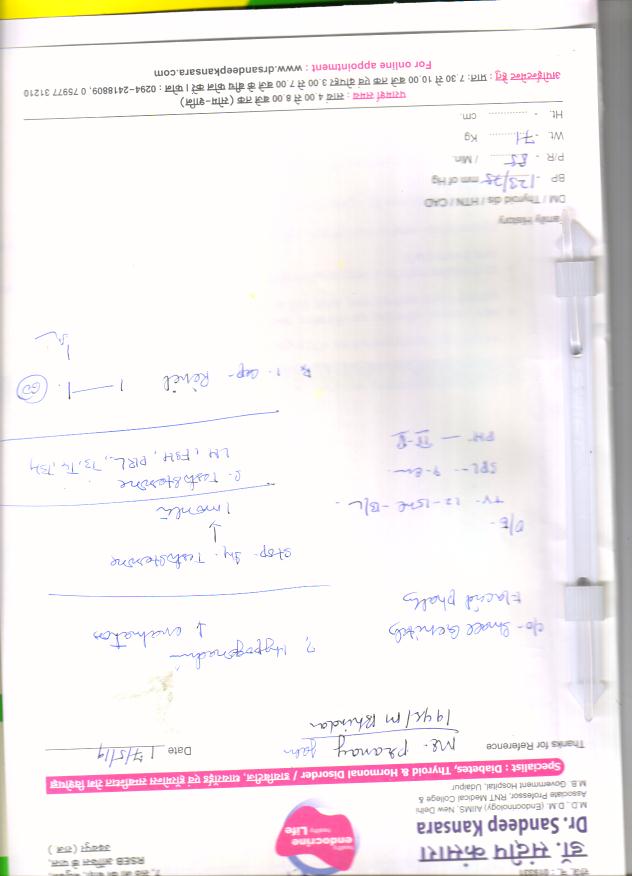 डॉ. संदीप कंसारा
Dr. Sandeep Kansara
M.D., D.M. (Endocrinology) AIIMS, New Delhi
Associate Professor, RNT Medical College &
M.B. Government Hospital, Udaipur
healthy
endocrine
healthy Life
RSEB ऑफिस के पास,
उदयपुर (राज.)
Specialist : Diabetes, Thyroid & Hormonal Disorder / डायबिटीज, थायरॉईड एवं हॉर्मोन्स सम्बन्धित रोग विशेषज्ञ
Thanks for Reference
Mr. Pranay Jain
Date 17/5/19
19 yr/m Bhindar
c/o - Small Genitals
flaccid phallus
? Hypogonadism
↓ evaluation
Stop - Inj. Testosterone
↓
1 month
O/E -
TV - 12-15 ml - B/L
SPL -
PH -
S. Testosterone
LH, FSH, PRL, T3, T4, TSH
Rx 1. Cap - 1 — 1. 60
Family History
DM / Thyroid dis / HTN / CAD
BP - 123/75 mm of Hg
P/R - 85 / Min.
Wt. - 71 Kg
Ht. - cm.
परामर्श समय : सायं 4.00 से 8.00 बजे तक (सोम-शनि)
अपॉइन्टमेन्ट हेतु : प्रातः 7.30 से 10.00 बजे तक एवं दोपहर 3.00 से 7.00 बजे के बीच फोन करें। फोन : 0294-2418809, 0 75977 31210
For online appointment : www.drsandeepkansara.com